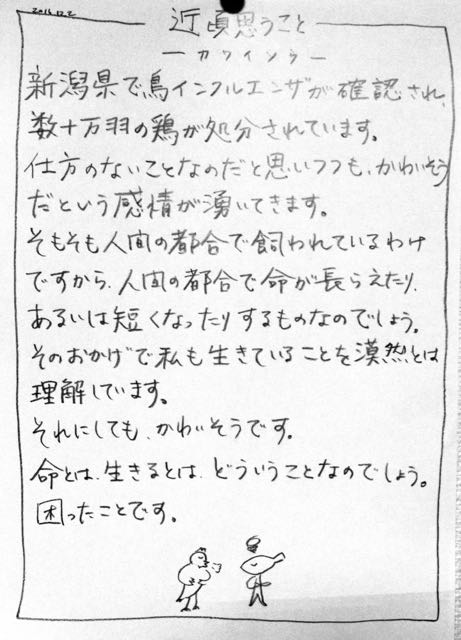 2016.12.2
近頃思うこと
ーカワイソウー
新潟県で鳥インフルエンザが確認され、
数十万羽の鶏が処分されています。
仕方のないことなのだと思いつつも、かわいそう
だという感情が湧いてきます。
そもそも人間の都合で飼われているわけ
ですから、人間の都合で命が長らえたり、
あるいは短くなったりするものなのでしょう。
そのおかげで私も生きていることを漠然とは
理解しています。
それにしても、かわいそうです。
命とは、生きるとは、どういうことなのでしょう。
困ったことです。